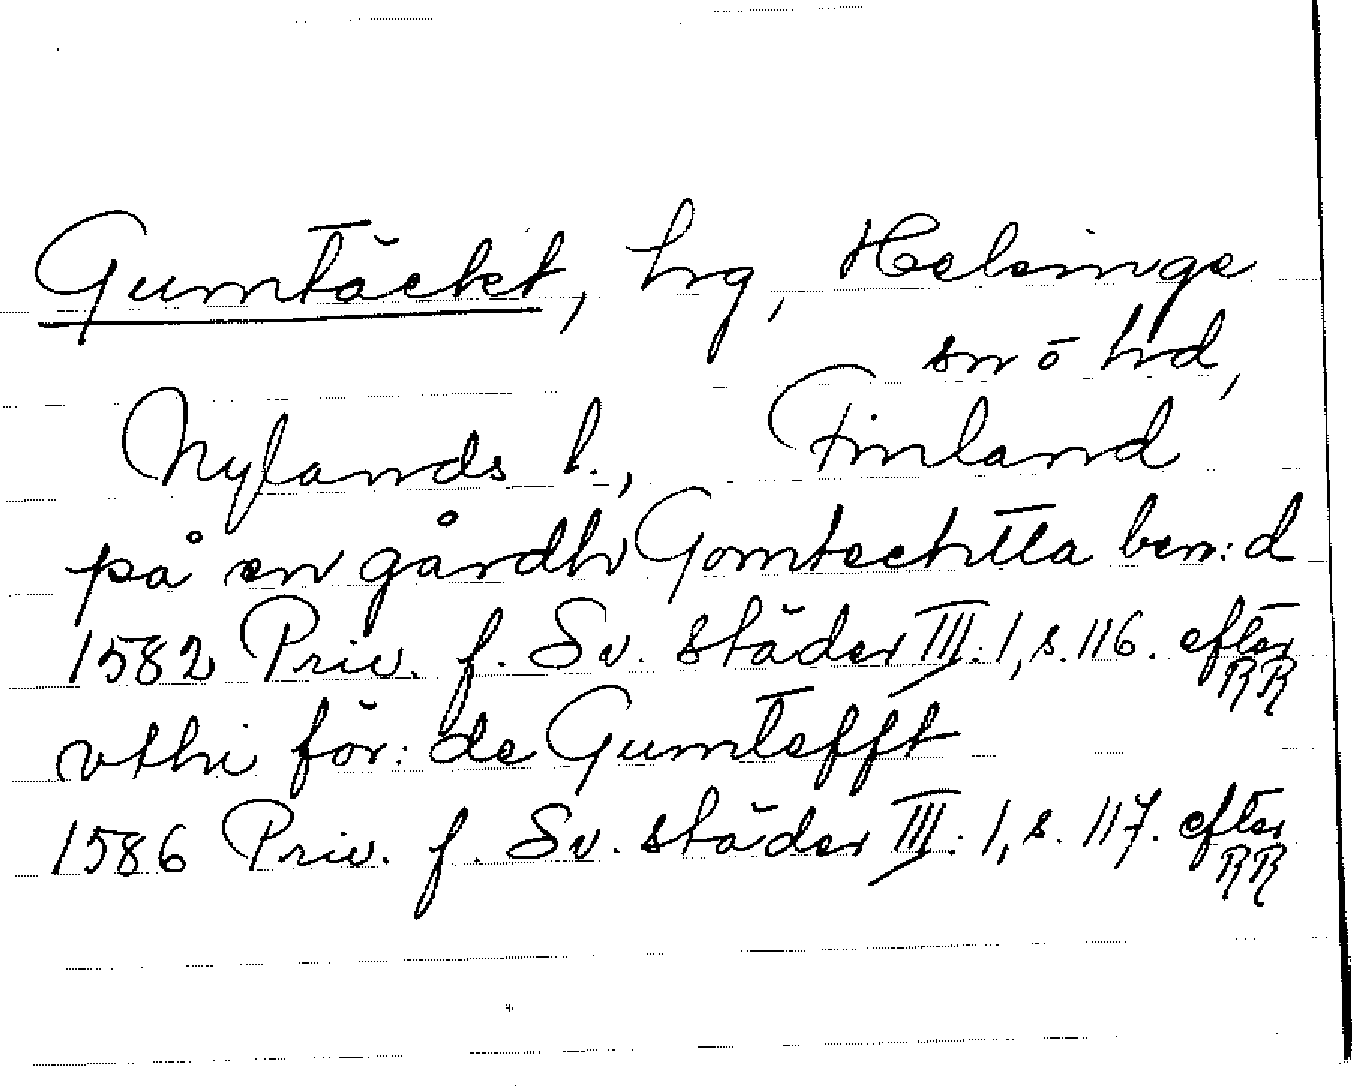 Gumtäckt, hrg, Helsinge
sn o hd,
Nylands l., Finland
på en gårdh Gomtechtta ben:d
1582 Priv. f. Sv. städer III:1, s. 116. efter RR
vthi för:de Gumtefft
1586 Priv. f. Sv. städer III:1, s. 117. efter RR